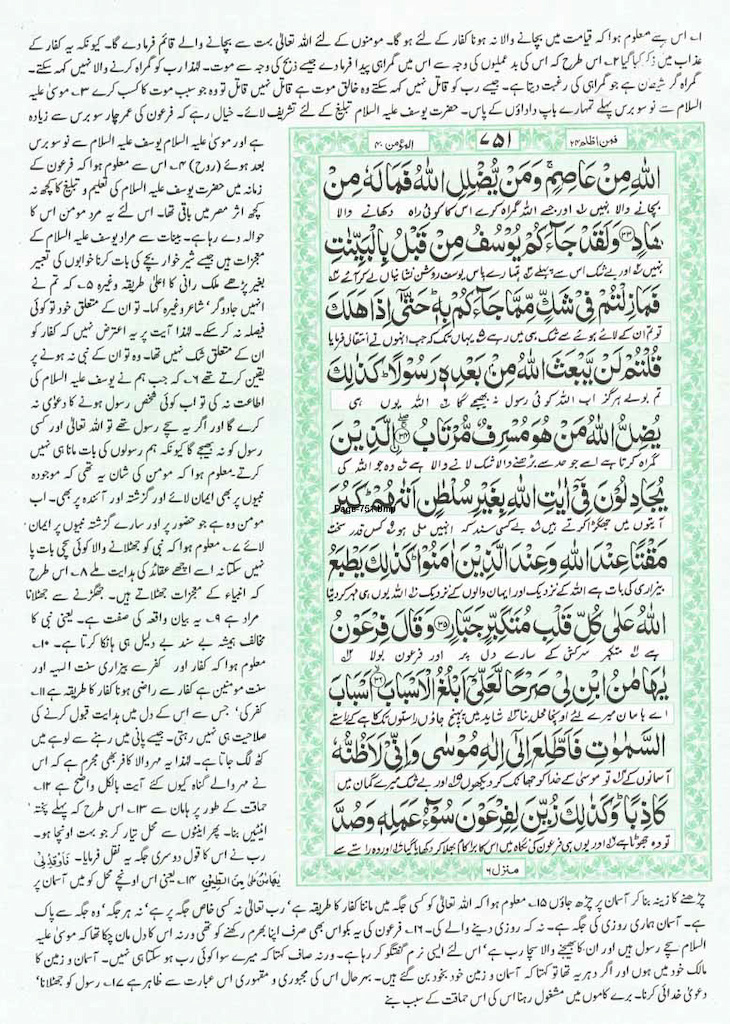 ۱؎ اس سے معلوم ہوا کہ قیامت میں بچانے والا نہ ہونا کفار کے لئے ہو گا۔ مومنوں کے لئے اللہ تعالیٰ بہت سے بچانے والے قائم فرما دے گا۔ کیونکہ یہ کفار کے
عذاب میں ذکر کیا گیا ۲؎ اس طرح کہ اس کی بد عملیوں کی وجہ سے اس میں گمراہی پیدا فرما دے جیسے ذبح کی وجہ سے موت۔ لہٰذا رب کو گمراہ کرنے والا نہیں کہہ سکتے۔
گمراہ گر شیطان ہے جو گمراہی کی رغبت دیتا ہے۔ جیسے رب کو قاتل نہیں کہہ سکتے وہ خالق موت ہے قاتل نہیں قاتل تو وہ جو سبب موت کا کسب کرے ۳؎ موسیٰ علیہ
السلام سے نو سو برس پہلے تمہارے باپ داداؤں کے پاس۔ حضرت یوسف علیہ السلام تبلیغ کے لئے تشریف لائے۔ خیال رہے کہ فرعون کی عمر چار سو برس سے زیادہ
فمن اظلم ۲۴
۷۵۱
المؤمن ۴۰
اللّٰهِ مِنْ عَاصِمٍ ۚ وَمَنْ يُّضْلِلِ اللّٰهُ فَمَا لَهٗ مِنْ
بچانے والا نہیں اور جسے اللہ گمراہ کرے اس کا کوئی راہ دکھانے والا
هَادٍ ﴿۳۳﴾ وَلَقَدْ جَآءَكُمْ يُوْسُفُ مِنْ قَبْلُ بِالْبَيِّنٰتِ
نہیں اور بے شک اس سے پہلے تمہارے پاس یوسف روشن نشانیاں لے کر آئے
فَمَا زِلْتُمْ فِيْ شَكٍّ مِّمَّا جَآءَكُمْ بِهٖ ۭ حَتّٰى اِذَا هَلَكَ
تو تم ان کے لائے ہوئے سے شک ہی میں رہے یہاں تک کہ جب انہوں نے انتقال فرمایا
قُلْتُمْ لَنْ يَّبْعَثَ اللّٰهُ مِنْ بَعْدِهٖ رَسُوْلًا ۭ كَذٰلِكَ
تم بولے ہرگز اب اللہ کوئی رسول نہ بھیجے گا اللہ یوں ہی
يُضِلُّ اللّٰهُ مَنْ هُوَ مُسْرِفٌ مُّرْتَابٌ ﴿۳۴﴾ الَّذِيْنَ
گمراہ کرتا ہے اسے جو حد سے بڑھنے والا شک لانے والا ہے وہ جو اللہ کی
يُجَادِلُوْنَ فِيْٓ اٰيٰتِ اللّٰهِ بِغَيْرِ سُلْطٰنٍ اَتٰىهُمْ ۭ كَبُرَ
Page-751.bmp
آیتوں میں جھگڑا کرتے ہیں بے کسی سند کہ انہیں ملی ہو کس قدر سخت
مَقْتًا عِنْدَ اللّٰهِ وَعِنْدَ الَّذِيْنَ اٰمَنُوْا ۭ كَذٰلِكَ يَطْبَعُ
بیزاری کی بات ہے اللہ کے نزدیک اور ایمان والوں کے نزدیک اللہ یوں ہی مہر کر دیتا
اللّٰهُ عَلٰى كُلِّ قَلْبِ مُتَكَبِّرٍ جَبَّارٍ ﴿۳۵﴾ وَقَالَ فِرْعَوْنُ
ہے متکبر سرکش کے سارے دل پر اور فرعون بولا
يٰهَامٰنُ ابْنِ لِيْ صَرْحًا لَّعَلِّيْٓ اَبْلُغُ الْاَسْبَابَ ﴿۳۶﴾ اَسْبَابَ
اے ہامان میرے لئے اونچا محل بنا شاید میں پہنچ جاؤں راستوں تک کاہے کے راستے
السَّمٰوٰتِ فَاَطَّلِعَ اِلٰٓى اِلٰهِ مُوْسٰى وَاِنِّيْ لَاَظُنُّهٗ
آسمانوں کے تو موسیٰ کے خدا کو جھانک کر دیکھوں اور بے شک میرے گمان میں
كَاذِبًا ۭ وَكَذٰلِكَ زُيِّنَ لِفِرْعَوْنَ سُوْٓءُ عَمَلِهٖ وَصُدَّ
تو وہ جھوٹا ہے اور یوں ہی فرعون کی نگاہ میں اس کا برا کام بھلا کر دکھایا گیا اور وہ راستے سے
منزل ۶
ہے اور موسیٰ علیہ السلام یوسف علیہ السلام سے نو سو برس
بعد ہوئے (روح) ۴؎ اس سے معلوم ہوا کہ فرعون کے
زمانہ میں حضرت یوسف علیہ السلام کی تعلیم و تبلیغ کا کچھ نہ
کچھ اثر مصر میں باقی تھا۔ اس لئے یہ مرد مومن اس کا
حوالہ دے رہا ہے۔ بینات سے مراد یوسف علیہ السلام کے
معجزات ہیں جیسے شیر خوار بچے کی بات کرنا خوابوں کی تعبیر
بغیر پڑھے ملک رانی کا اعلیٰ طریقہ وغیرہ ۵؎ کہ تم نے
انہیں جادوگر، شاعر وغیرہ کہا۔ تو ان کے متعلق خود تو کوئی
فیصلہ نہ کر سکے۔ لہٰذا آیت پر یہ اعتراض نہیں کہ کفار کو
ان کے متعلق شک نہیں تھا۔ وہ تو ان کے نبی نہ ہونے پر
یقین کرتے تھے ۶؎ کہ جب ہم نے یوسف علیہ السلام کی
اطاعت نہ کی تو اب کوئی شخص رسول ہونے کا دعویٰ نہ
کرے گا اور اگر یہ سچے رسول تھے تو اللہ تعالیٰ اور کسی
رسول کو نہ بھیجے گا کیونکہ ہم رسولوں کی بات مانا ہی نہیں
کرتے۔ معلوم ہوا کہ مومن کی شان یہ تھی کہ موجودہ
نبیوں پر بھی ایمان لائے اور گزشتہ اور آئندہ پر بھی۔ اب
مومن وہ ہے جو حضور پر اور سارے گزشتہ نبیوں پر ایمان
لائے ۷؎ معلوم ہوا کہ نبی کو جھٹلانے والا کوئی سچی بات پا
نہیں سکتا نہ اسے اچھے عقائد کی ہدایت ملے ۸؎ اس طرح
کہ انبیاء کے معجزات جھٹلاتے ہیں۔ جھگڑنے سے جھٹلانا
مراد ہے ۹؎ یہ بیان واقعہ کی صفت ہے۔ یعنی نبی کا
مخالف ہمیشہ بے سند بے دلیل ہی بانکا کرتا ہے۔ ۱۰؎
معلوم ہوا کہ کفار اور کفر سے بیزاری سنت الٰہیہ اور
سنت مومنین ہے کفار سے راضی ہونا کفار کا طریقہ ہے ۱۱؎
کفر کی، جس سے اس کے دل میں ہدایت قبول کرنے کی
صلاحیت ہی نہیں رہتی۔ جیسے پانی میں رہنے سے لوہے میں
لگ جاتا ہے۔ لہٰذا یہ مہر والا کافر بھی مجرم ہے کہ اس
نے مہر والے گناہ کیوں کئے آیت بالکل واضح ہے ۱۲؎
حماقت کے طور پر ہامان سے ۱۳؎ اس طرح کہ پہلے پختہ
اینٹیں بنا۔ پھر اینٹوں سے محل تیار کر جو بہت اونچا ہو۔
رب نے اس کا قول دوسری جگہ یہ نقل فرمایا۔ فَاَوْقِدْ لِيْ
يٰهَامٰنُ عَلَى الطِّيْنِ ۱۴؎ یعنی اس اونچے محل کو میں آسمان پر
چڑھنے کا زینہ بنا کر آسمان پر چڑھ جاؤں ۱۵؎ معلوم ہوا کہ اللہ تعالیٰ کو کسی جگہ میں ماننا کفار کا طریقہ ہے، رب تعالیٰ نہ کسی خاص جگہ پر ہے، نہ ہر جگہ، وہ جگہ سے پاک
ہے۔ آسمان ہماری روزی کی جگہ ہے۔ نہ کہ روزی دینے والے کی۔ ۱۶؎ فرعون کی یہ بکواس بھی صرف اپنا بھرم رکھنے کو تھی ورنہ اس کا دل مان چکا تھا کہ موسیٰ علیہ
السلام سچے رسول ہیں اور ان کا بھیجنے والا سچا رب ہے، اس لئے ایسی نرم گفتگو کر رہا ہے۔ ورنہ صاف کہتا کہ میرے سوا کوئی رب ہو سکتا ہی نہیں۔ آسمان و زمین کا
مالک خود میں ہوں اور اگر دہریہ تھا تو کہتا کہ آسمان و زمین خود بخود بن گئے ہیں۔ بہرحال اس کی مجبوری و مقہوری اس عبارت سے ظاہر ہے ۱۷؎ رسول کو جھٹلانا،
دعویٰ خدائی کرنا۔ برے کاموں میں مشغول رہنا اس کی اس حماقت کے سبب بنے